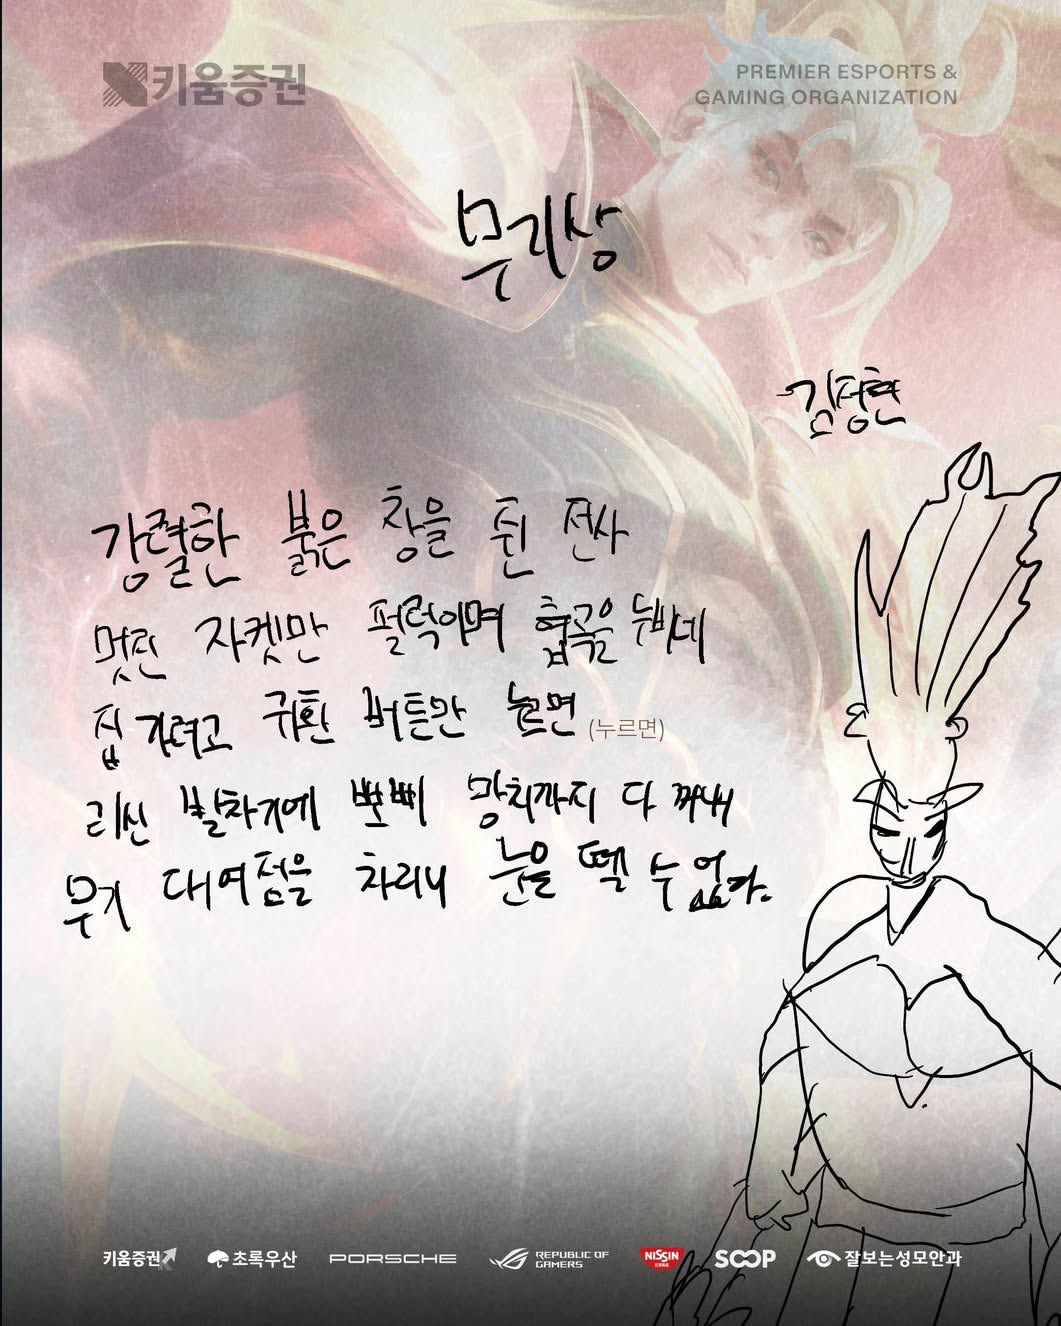 키움증권
PREMIER ESPORTS &
GAMING ORGANIZATION
무기상
김정현
강렬한 붉은 창을 쥔 전사
멋진 자켓만 펄럭이며 협곡을 누비네
집 가려고 귀환 버튼만 눌르면 (누르면)
리신 발차기에 뽀삐 망치까지 다 꺼내
무기 대여점을 차리니 눈을 뗄 수 없다.
키움증권
초록우산
PORSCHE
REPUBLIC OF
GAMERS
NISSIN
SOOP
잘보는성모안과